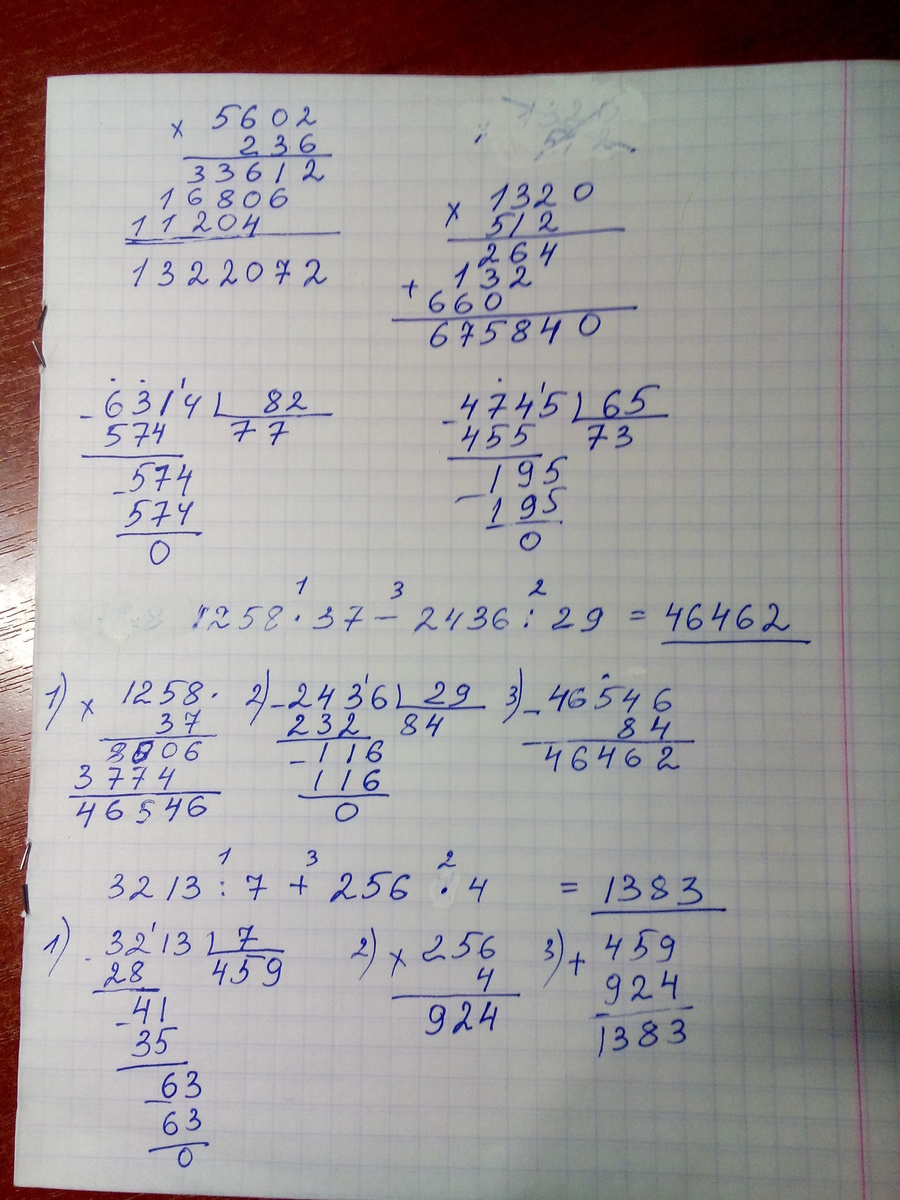 × 5602
236
33612
16806
11204
1322072
× 1320
512
264
+ 132
660
675840
- 6314 | 82
574 77
- 574
574
0
- 4745 | 65
455 73
- 195
195
0
1 3 2
1258 · 37 - 2436 : 29 = 46462
1) × 1258 ·
37
8806
3774
46546
2) - 2436 | 29
232 84
- 116
116
0
3) - 46546
84
46462
1 3 2
3213 : 7 + 256 · 4 = 1383
1) - 3213 | 7
28 459
- 41
35
- 63
63
0
2) × 256
4
924
3) + 459
924
1383